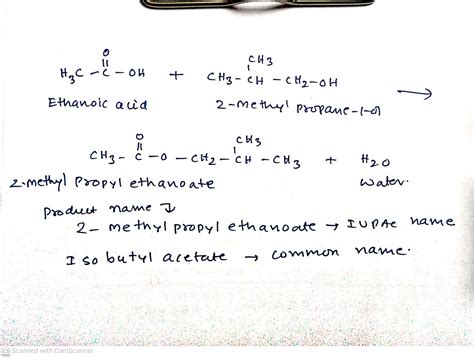 O
||
H3C - C - OH + CH3 - CH - CH2 - OH →
CH3
|
Ethanoic acid 2-methyl propane-1-ol
O
||
CH3 - C - O - CH2 - CH - CH3 + H2O
CH3
|
2-methyl propyl ethanoate water.
product name ↓
2- methyl propyl ethanoate → IUPAC name
Isobutyl acetate → common name.
CS Scanned with CamScanner